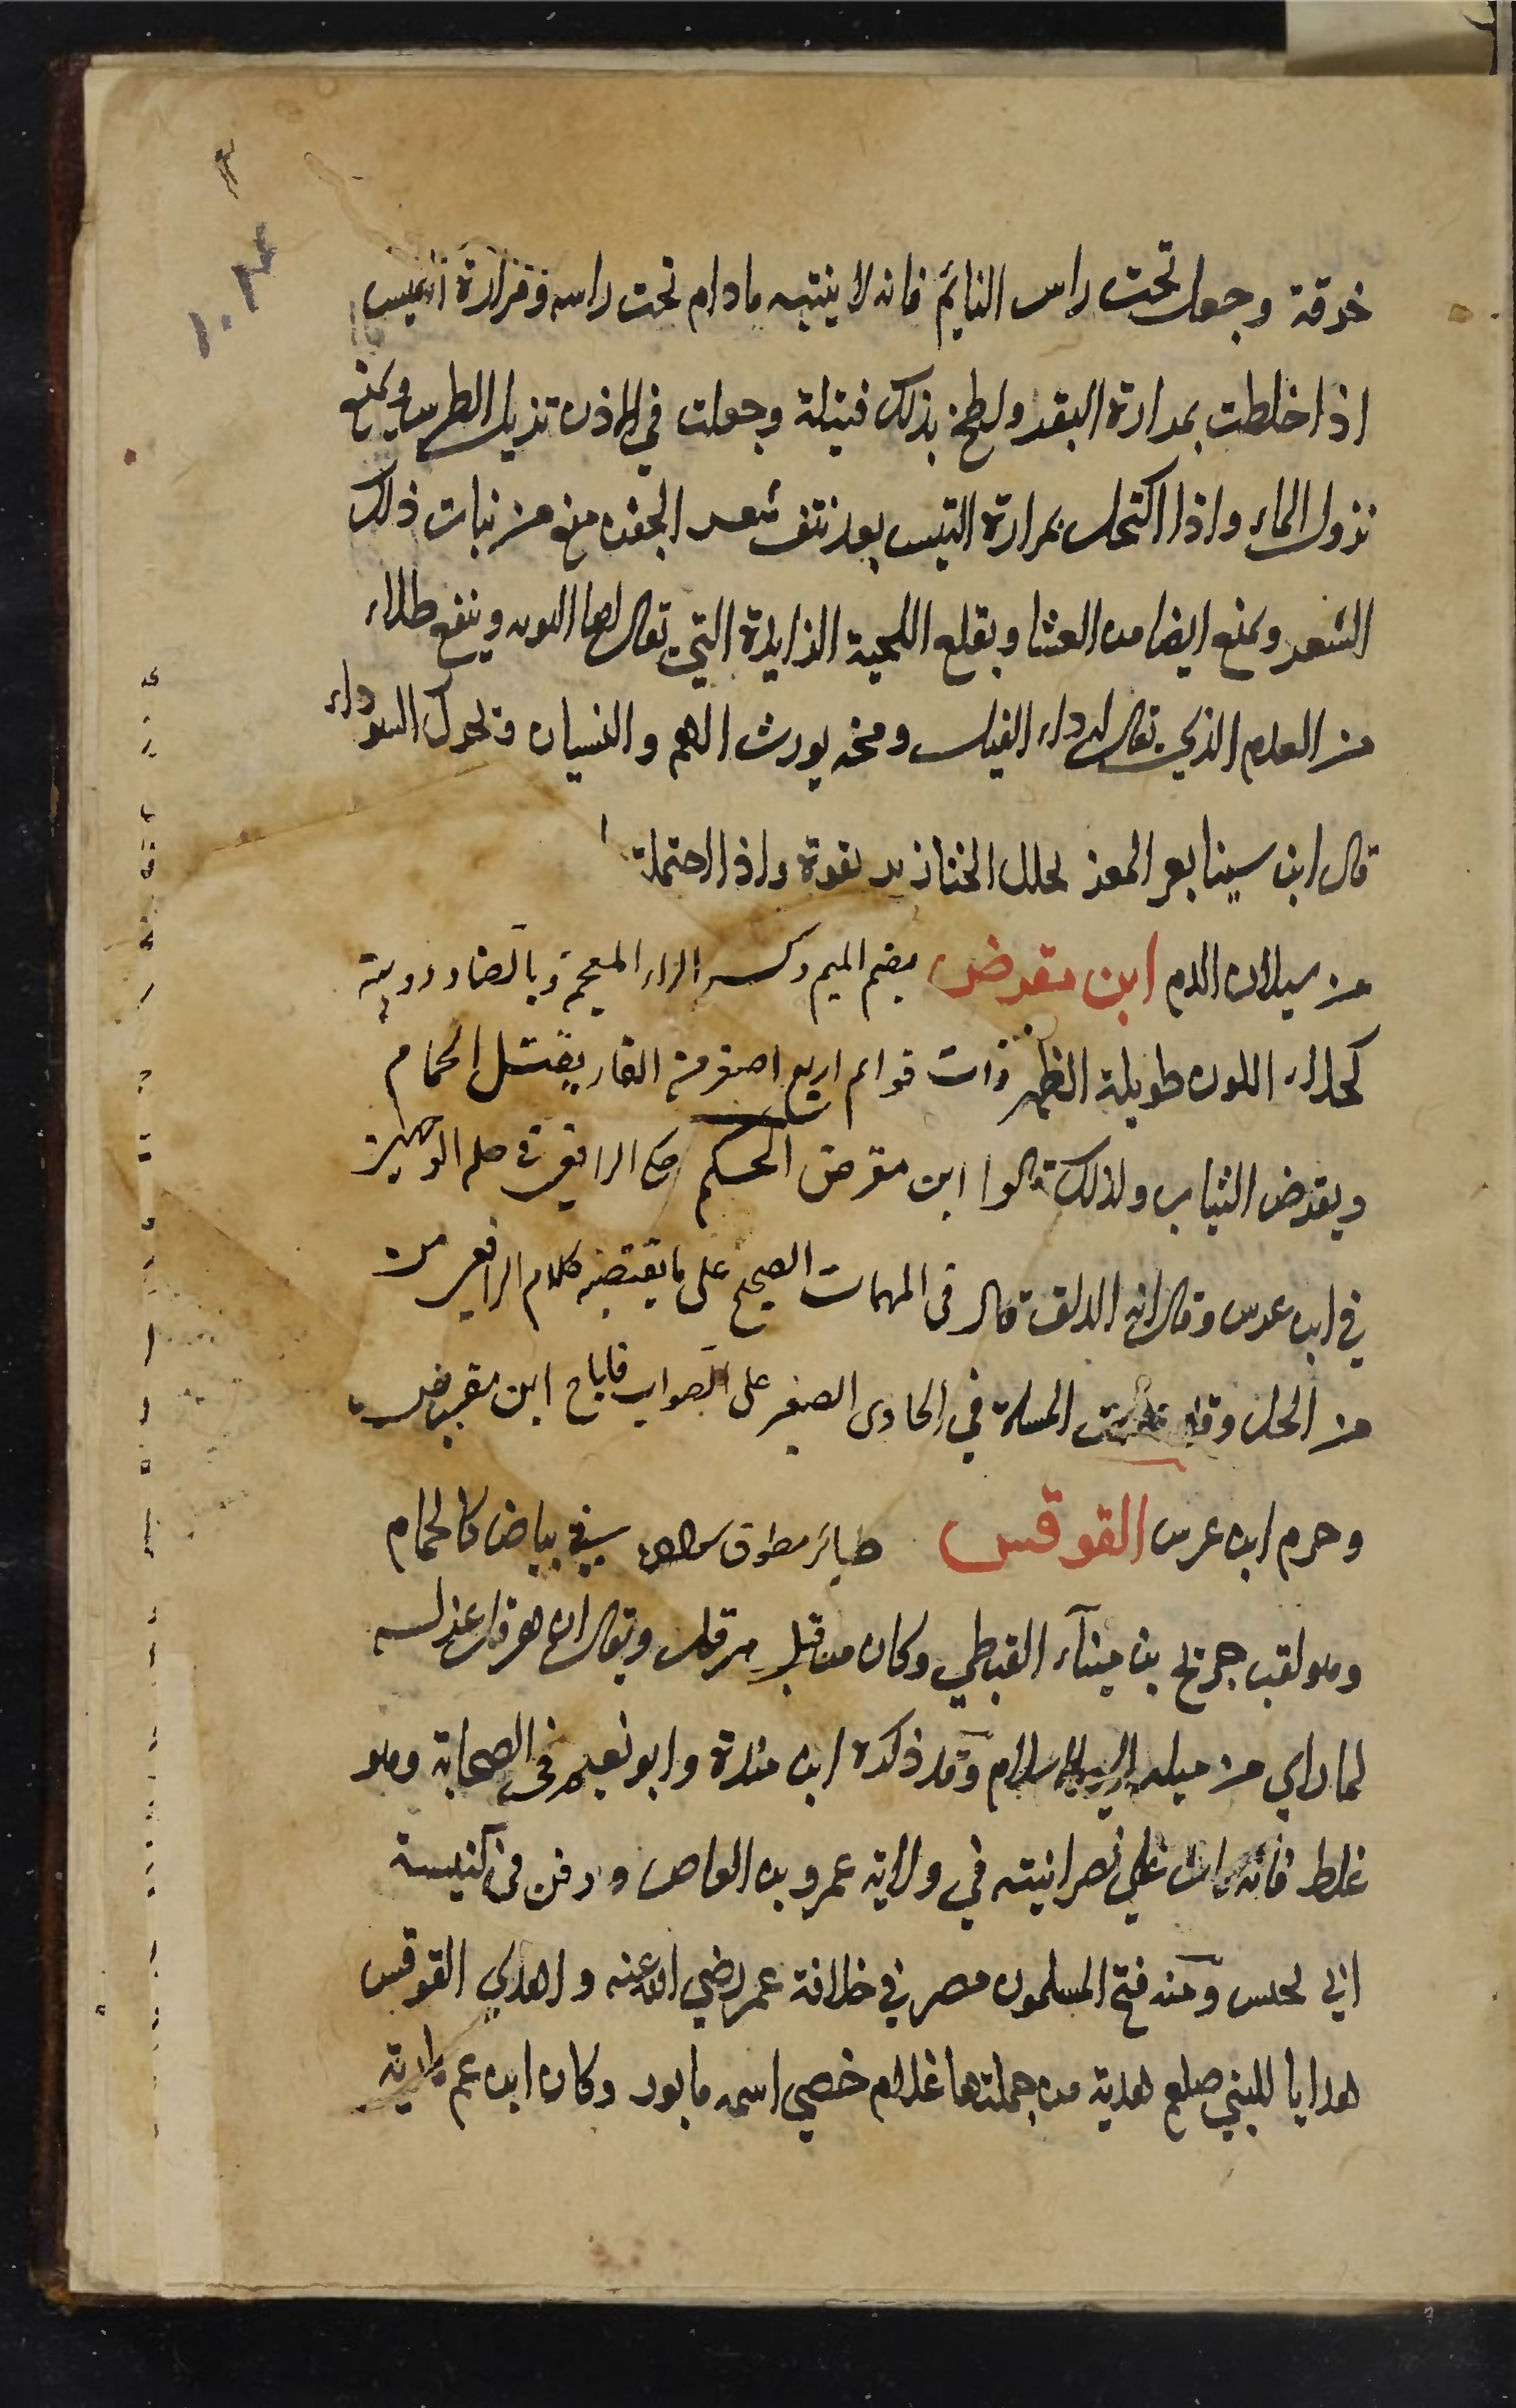 ٣
١٠٢
خرقة وجعل تحت راس النايم فانه لا ينتبه مادام تحت راسه ومرارة التيس
اذا خلطت بمرارة البقر ولطخ بذلك فتيلة وجعلت في الاذن تزيل الطرش ويمنع
نزول الماء واذا اكتحل بمرارة التيس بعد نتف شعر الجفن منع من نبات ذلك
الشعر ويمنع ايضا من العشا ويقلع اللحمية الزايدة التي يقال لها التوت وينفع طلاء
من الورم الذي يقال له داء الفيل ومخه يورث الهم والنسيان ويحرك السوداء
قال ابن سينا بعر المعز يحلل الخنازير بقوة واذا احتملته
من سيلان الدم ابن مقرض بضم الميم وكسر الراء المعجمة وبالضاد دويبة
كحلاء اللون طويلة الظهر ذات قوائم اربع اصغر من الفار يقتل الحمام
ويقرض الثياب ولذلك قالوا ابن مقرض الحكم حكى الرافعي في حله الوجهين
في ابن عرس وقال انه الدلق قال في المهمات الصحيح على ما يقتضيه كلام الرافعي من
من الحل وقد المسلة في الحاوى الصغير على الصواب فاباح ابن مقرض
وحرم ابن عرس القوقس طاير مطوق سواده في بياض كالحمام
وهو لقب جريج بن ميناء القبطي وكان من قبل هرقل ويقال ان هرقل عزله
لما راي من ميله الي الاسلام وقد ذكره ابن مندة وابو نعيم في الصحابة وهو
غلط فانه مات علي نصرانيته في ولاية عمرو بن العاص ودفن في كنيسة
ابي يحنس ومنه فتح المسلمون مصر في خلافة عمر رضي الله عنه واهدي القوقس
هدايا للنبي صلعم هدية من جملتها غلام خصي اسمه مابور وكان ابن عم مارية